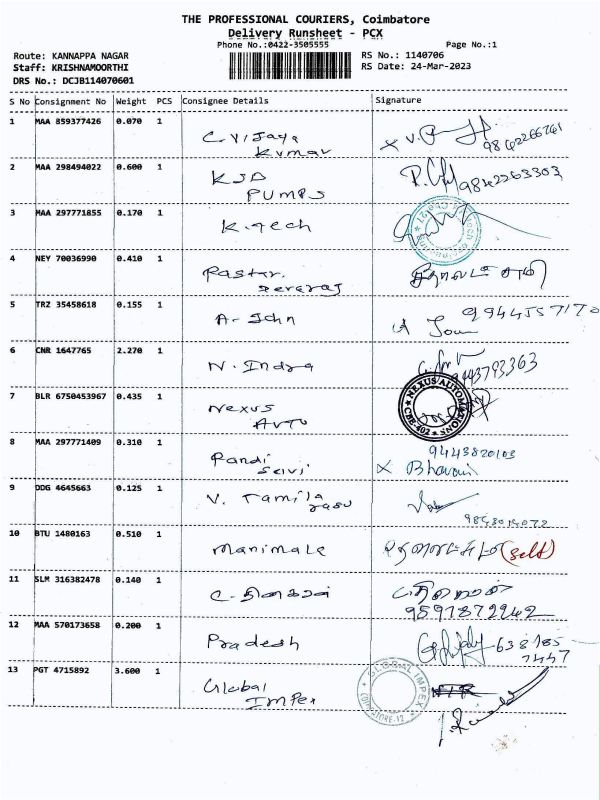 THE PROFESSIONAL COURIERS, Coimbatore
Delivery Runsheet - PCX
Phone No.:0422-3505555 Page No.:1
Route: KANNAPPA NAGAR RS No.: 1140706
Staff: KRISHNAMOORTHI RS Date: 24-Mar-2023
DRS No.: DCJB114070601
S No Consignment No Weight PCS Consignee Details Signature
1 MAA 859377426 0.070 1
C. Vijaya
Kumar
2 MAA 298494022 0.600 1
KSD 9842263303
PUMPS
3 MAA 297771855 0.170 1
K-Tech
4 NEY 70036990 0.410 1
Pastar.
5 TRZ 35458618 0.155 1
A-John
6 CNR 1647765 2.270 1
N. Indra 9443793363
7 BLR 6750453967 0.435 1
Nexus
Auto
NEXUS AUTOM
CBE-402
8 MAA 297771409 0.310 1
Pandi 9443820103
Selvi X Bhavani
9 DDG 4645663 0.125 1
V. Tamila
rasu
10 BTU 1480163 0.510 1
Manimala (self)
11 SLM 316382478 0.140 1
9591872242
12 MAA 570173658 0.200 1
Pradesh 638785
7447
13 PGT 4715892 3.600 1
Global
Impex
GLOBAL IMPEX